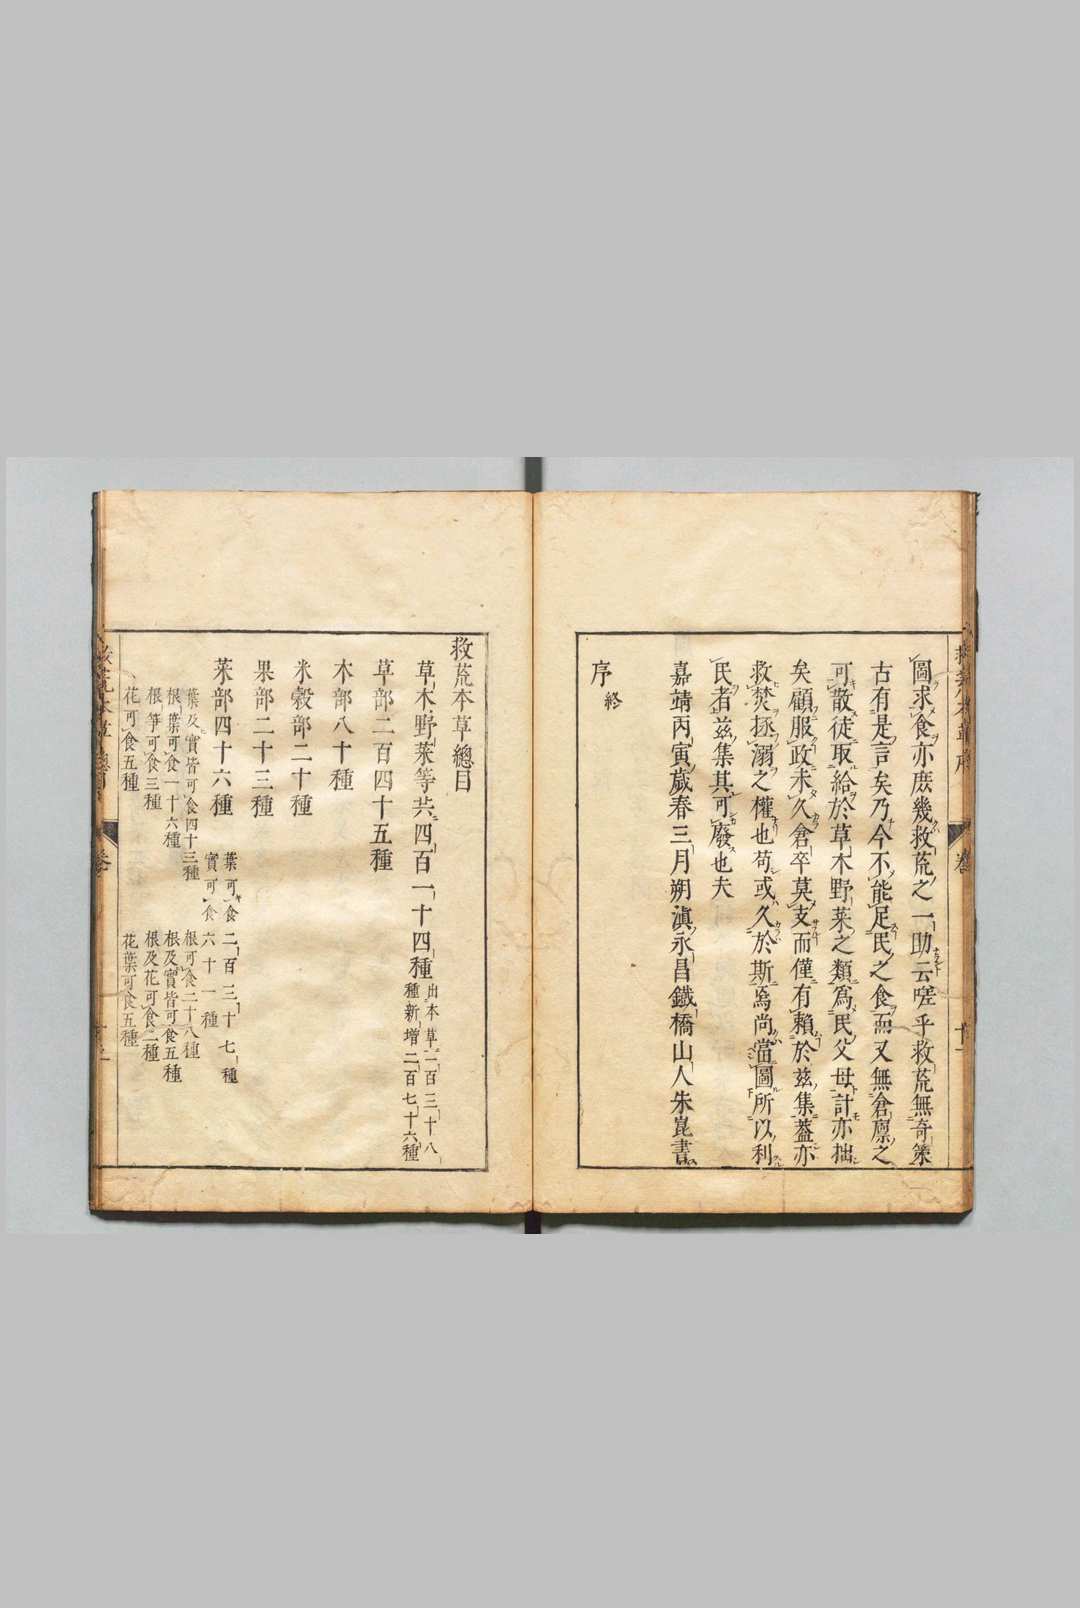 圖求食亦庶幾救荒之一助云嗟乎救荒無奇策
古有是言矣乃今不能足民之食而又無倉廩之
可散徒取給於草木野菜之類爲民父母計亦拙
矣顧服政未久倉卒莫支而僅有賴於兹集蓋亦
救焚拯溺之權也苟或久於斯焉尚當圖所以利
民者兹集其可廢也夫
嘉靖丙寅歲春三月朔滇永昌鐵橋山人朱崑書
序終
救荒本草總目
草木野菜等共四百一十四種出本草一百三十八
種新增二百七十六種
草部二百四十五種
木部八十種
米穀部二十種
果部二十三種
菜部四十六種
葉可食二百三十七種
實可食六十一種
葉及實皆可食四十三種
根可食二十八種
根葉可食一十六種
根及實皆可食五種
根笋可食三種
根及花可食二種
花可食五種
花葉可食五種